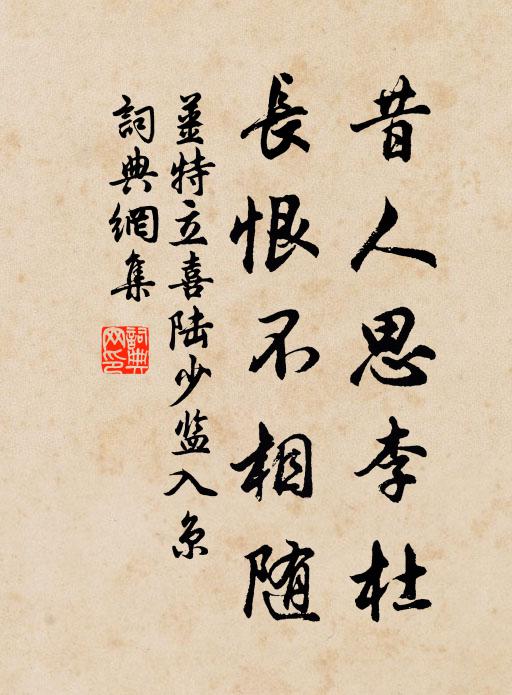 昔人思李杜
長恨不相随
姜特立喜陆少监入京
詞典網集
詞典网印